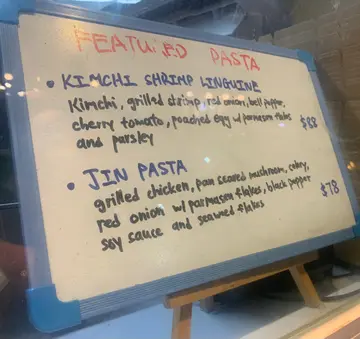 FEATURED PASTA
• KIMCHI SHRIMP LINGUINE
Kimchi, grilled shrimp, red onion, bell pepper,
cherry tomato, poached egg w/ parmasen flakes
and parsley $88
• JIN PASTA
grilled chicken, pan seared mushroom, celery,
red onion w/ parmasen flakes, black pepper
soy sauce and seaweed flakes $78